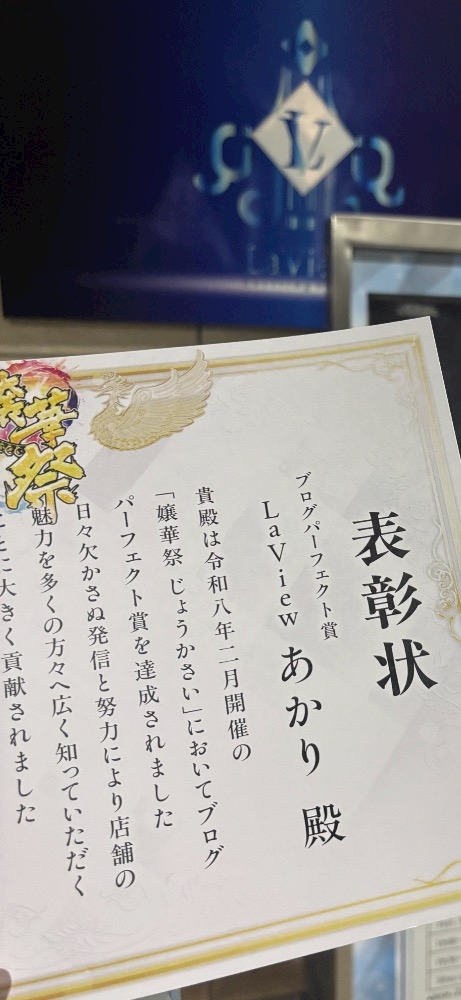 LV
表彰状
ブログパーフェクト賞
LaView あかり 殿
貴殿は令和八年二月開催の
「嬢華祭 じょうかさい」においてブログ
パーフェクト賞を達成されました
日々欠かさぬ発信と努力により店舗の
魅力を多くの方々へ広く知っていただく
とに大きく貢献されました
華祭